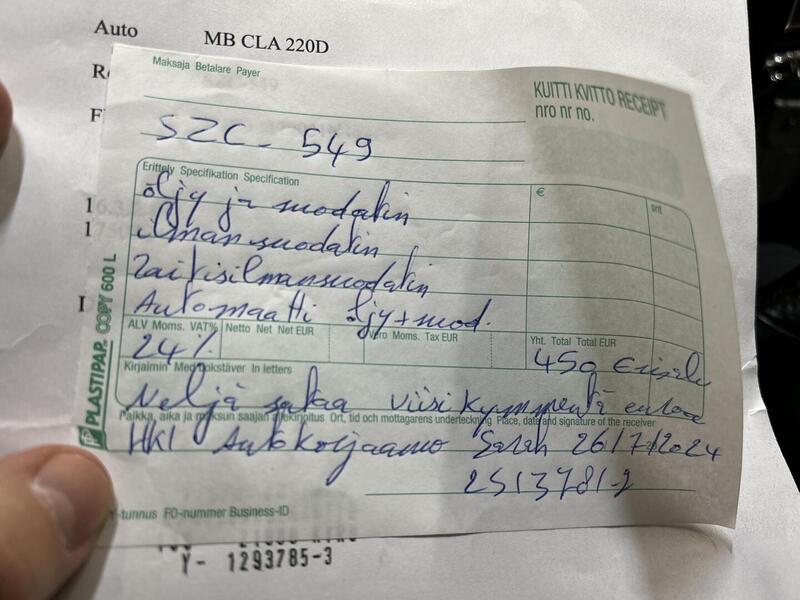 Auto MB CLA 220D
Maksaja Betalare Payer
KUITTI KVITTO RECEIPT
nro nr no.
SZC - 549
Erittely Specifikation Specification € snt
öljy ja suodatin
ilmansuodatin
raitisilmansuodatin
Automaatti öljy + suod.
ALV Moms. VAT% Netto Net Net EUR Vero Moms. Tax EUR Yht. Total Total EUR
24% 450
Kirjaimin Med bokstäver In letters
Neljä sataa viisikymmentä euroa
Paikka, aika ja maksun saajan allekirjoitus Ort, tid och mottagarens underteckning Place, date and signature of the receiver
HKI Autokorjaamo 26/7/2024
2513781-2
Y-tunnus FO-nummer Business-ID
PLASTIPAP. COPY 600 L
Y- 1293785-3